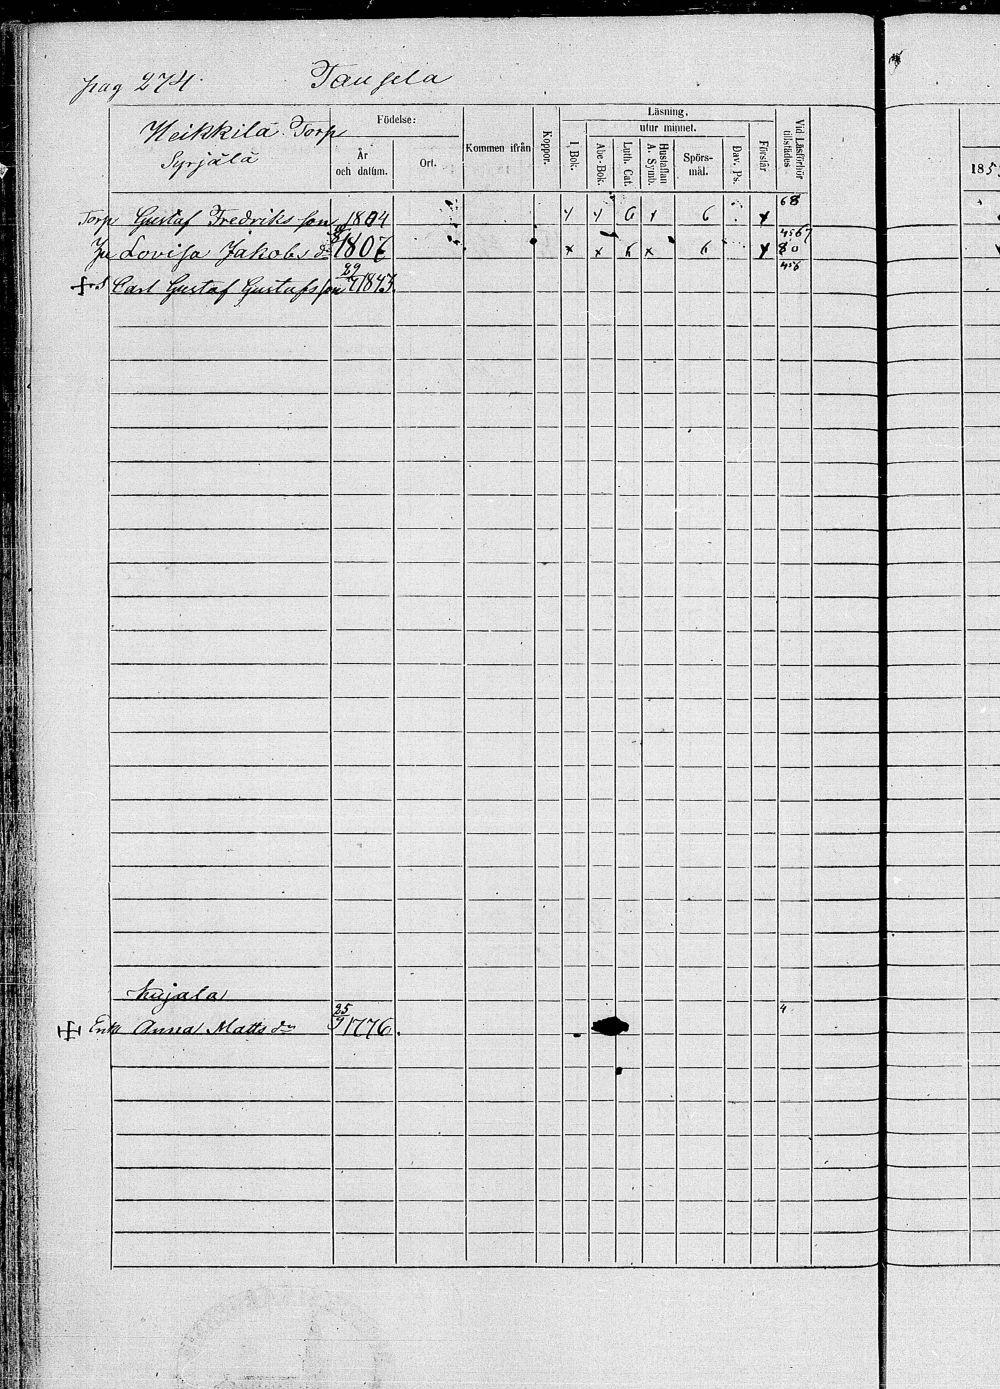 pag 274. Tangela
Heikkilä Torp
Syrjälä
Födelse:
År och datum.
Ort.
Kommen ifrån
Koppor.
Läsning,
utur minnet.
I Bok.
Abc-Bok.
Luth. Cat.
Hustaflan A. Symb.
Spörs-mål.
Dav. Ps.
Förstår
Vid Läsförhör tillstädes
185
68
Torp Gustaf Fredriks son 1804 6 6
4567
Lovisa Jakobs dr 1807 6 6 80
456
Carl Gustaf Gustafsson 29 1843.
Kujala
4
Enka Anna Matts dr 25 1776.